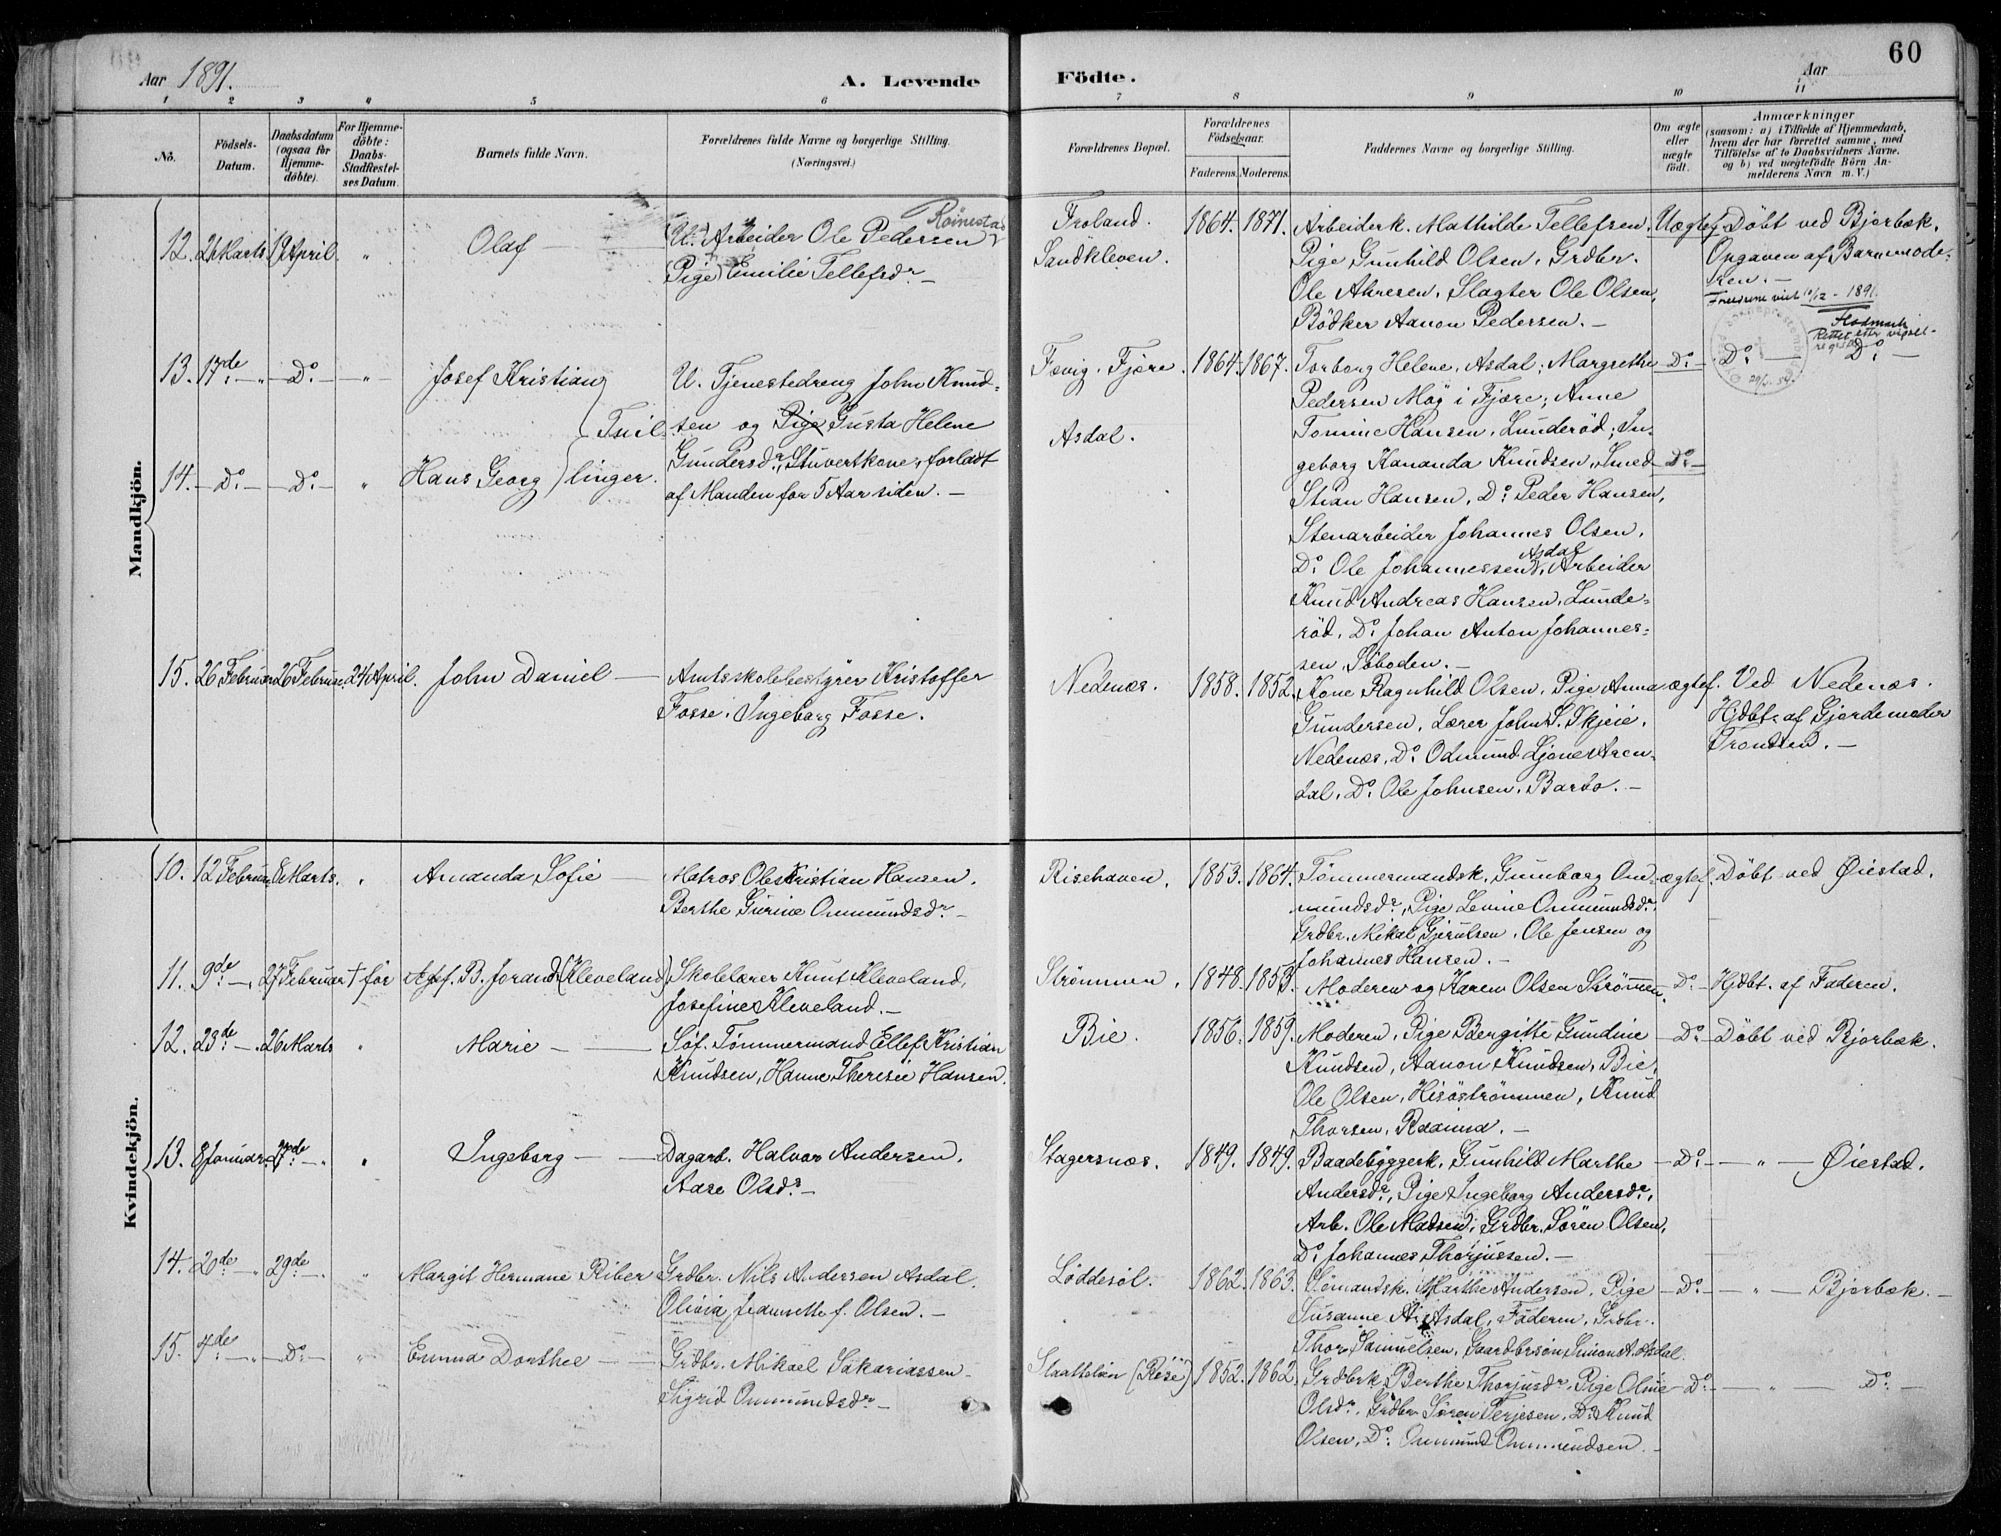 60
Aar 1891.
A. Levende
Födte.
Aar
1 2 3 4 5 6 7 8 9 10 11
No.
Födsels-Datum.
Daabsdatum (ogsaa for Hjemme-döbte).
For Hjemme-döbte: Daabs-Stadfæstel-ses Datum.
Barnets fulde Navn.
Forældrenes fulde Navne og borgerlige Stilling.
(Næringsvei.)
Forældrenes Bopæl.
Forældrenes Födselsaar.
Faderens. Moderens.
Faddernes Navne og borgerlige Stilling.
Om ægte eller uægte födt.
Anmærkninger
(saasom: a) i Tilfælde af Hjemmedaab,
hvem der har forrettet samme, med
Tilföielse af to Daabsvidners Navne.
og b) ved uægtefödte Börn An-
melderens Navn m. V.)
Mandkjön.
12. 26 Marts 19 April " Olaf
(U.) Arbeider Ole Pedersen Röinestad
(Pige) Emilie Tellefsdr. —
Froland.
Sandkleven.
1864. 1871.
Arbeiderk. Mathilde Tellefsen.
Pige Gunhild Olsen. Grdbr.
Ole Akresen. Slagter Ole Olsen,
Bödker Aanon Pedersen. —
Uægtef.
Döbt ved Bjorbæk.
Opgaven af Barnemode-
ren. —
Forældrene viet 10/12 - 1891.
13. 17de — " — Do. — " Josef Kristian
14. — Do. — — Do. — " Hans Georg
Tvil-
linger.
U. Tjenestedreng John Knud-
sen og Pige Gusta Helene
Gundersdr., Stuvertkone, forladt
af Manden for 5 Aar siden. —
Fævig. Fjære.
Asdal.
1864. 1867.
Torborg Helene, Asdal; Margrethe
Pedersen Møg i Fjære; Anne
Tomine Hansen, Lunderöd; In-
geborg Kananda Knudsen, Smed
Stian Hansen, Do. Peder Hansen,
Stenarbeider Johannes Olsen.
Do. Ole Johannessen, Asdal, Arbeider
Knud Andreas Hansen, Lunde-
röd, Do. Johan Anton Johannes-
sen, Söboden. —
— Do. —
— Do. —
Do. Do. —
15. 26 Februar 26 Februar. 24 April. John Daniel —
Amtsskolebestyrer Kristoffer
Fosse. Ingeborg Fosse.
Nedenæs.
1858. 1852.
Kone Ragnhild Olsen. Pige Anna
Gundersen. Lærer John S. Skjeie.
Nedenæs. Do. Odmund Ljones Aren-
dal. Do. Ole Johnsen. Barbo. —
ægtef.
Ved Nedenæs.
Hjdbt. af Gjordemoder
Trondsen. —
Kvindekjön.
10. 12 Februar 8 Marts. " Amanda Sofie —
Matros Ole Kristian Hansen.
Berthe Gurine Ommundsdr. —
Risehaven.
1853. 1864.
Tömmermandsk. Gumborg Om-
mundsdr., Pige Levine Ommundsdr.
Grdbr. Mikal Gjerulsen. Ole Jensen og
Johannes Hansen. —
ægtef.
Döbt ved Øiestad.
11. 9de — " 27 Februar † før Agf. B. Jorand (Kleveland)
Skolelærer Knut Kleveland,
Josefine Kleveland. —
Strømmen.
1848. 1853.
Moderen og Karen Olsen Strömmen.
— Do. —
Hjdbt. af Faderen.
12. 23de — " 26 Marts " Marie —
Söf. Tömmermand Ellef Kristian
Knudsen, Hanne Theresie Hansen.
Bie.
1856. 1859.
Moderen, Pige Bergitte Gundine
Knudsen, Aanon Knudsen, Bie,
Ole Olsen, Hisöströmmen, Knud
Thorsen,
— Do. —
Döbt ved Bjorbæk.
13. 8 Januar 7de — " " Ingeborg —
Dagarb. Halvor Andersen.
Aase Olsdr. —
Stagersnæs.
1849. 1849.
Baadebyggerk. Gunhild Marthe
Andersdr., Pige Ingeborg Andersdr.,
Arb. Ole Madsen, Grdbr. Sören Olsen,
Do. Johannes Thorjussen. —
— Do. —
— " — Øiestad.
14. 20de — " 29de — " " Margit Hermane Riber
Grdbr. Nils Andersen Asdal.
Olivia Jeannette f. Olsen. —
Löddesöl.
1862. 1863.
Sömandsk. Marthe Andersen, Pige
Susanne A. Asdal, Faderen, Grdbr.
Thor Samuelsen, Gaardbrsön Simon A. Asdal.
— Do. —
— " — Bjorbæk. —
15. 4de — " — Do. — " Emma Dorthee —
Grdbr. Mikael Sakariassen
Sigrid Ommundsdr. —
(Rise)
1852. 1862.
Grdbrk. Berthe Thorjusdr. Pige Oline
Olsdr. Grdbr. Sören Terjesen, Do. Knud
Olsen, Do. Ommund Ommundsen. —
— Do. —
— " — Do. —